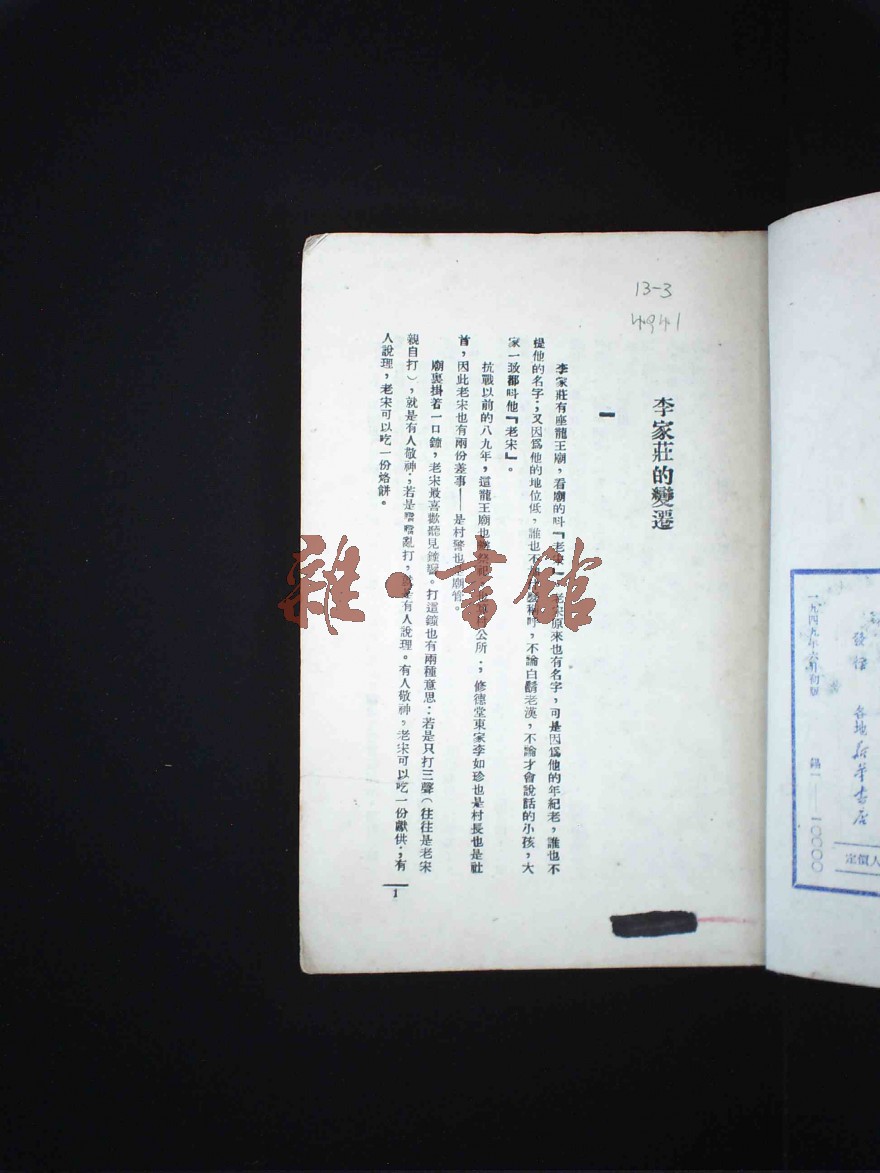 一九四九年六月初版
錫一——一〇〇〇〇
各地新華書店
定價人
13-3
4941
李家莊的變遷
一
李家莊有座龍王廟，看廟的叫『老宋』。老宋原來也有名字，可是因爲他的年紀老，誰也不
提他的名字；又因爲他的地位低，誰也不
不論白鬍老漢，不論才會說話的小孩，大
家一致都叫他『老宋』。
抗戰以前的八九年，這龍王廟也
公所；修德堂東家李如珍也是村長也是社
首，因此老宋也有兩份差事——是村警也是廟管。
廟裏掛着一口鐘，老宋最喜歡聽見鐘響。打這鐘也有兩種意思：若是只打三聲（往往是老宋
親自打），就是有人敬神；若是噹噹亂打，就是有人說理。有人敬神，老宋可以吃一份獻供；有
人說理，老宋可以吃一份烙餅。
1
雜·書館